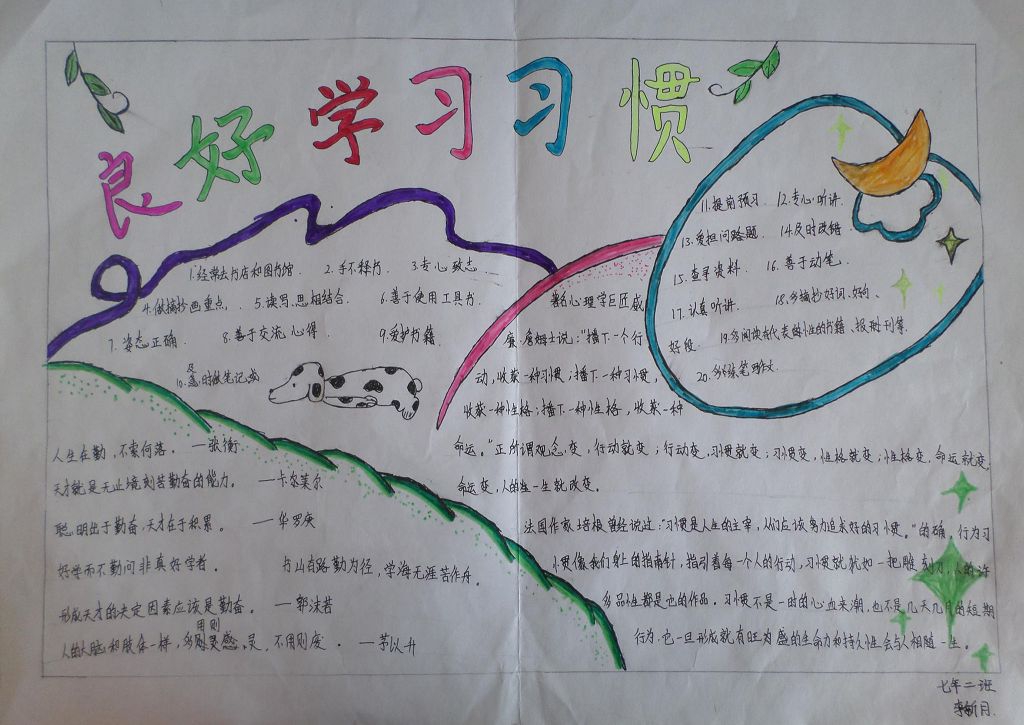 良好学习习惯
1.经常去书店和图书馆. 2.手不释书. 3.专心致志.
4.做摘抄画重点, 5.读写思相结合. 6.善于使用工具书.
7.姿态正确. 8.善于交流心得 9.爱护书籍.
10.及时做笔记.
11.提前预习. 12.专心听讲.
13.爱担问 14.及时改错.
15.查寻资料. 16.善于动笔.
17.认真听讲. 18.多摘抄好词、好句、
好段. 19.多阅读有代表的性的书籍、报刊
20.多练笔作文.
人生在勤,不索何落。 —张衡
天才就是无止境刻苦勤奋的能力。 —卡尔莱尔
聪明出于勤奋,天才在于积累。 —华罗庚
好学而不勤问非真好学者。 书山有路勤为径,学海无涯苦作舟。
形成天才的决定因素应该是勤奋。 —郭沫若
人的人脑和肢体一样,多用则灵,不用则废。 —茅以升
著名心理学巨匠威
廉·詹姆士说:“播下一个行
动,收获一种习惯;播下一种习惯,
收获一种性格;播下一种性格,收获一种
命运。”正所谓观念变,行动就变;行动变,习惯就变;习惯变,性格就变;性格变,命运就变,
命运变,人的生一生就改变。
法国作家培根曾经说过:“习惯是人生的主宰,人们应该努力追求好的习惯。”的确,行为习
惯像我们身上的指南针,指引着每一个人的行动,习惯就犹如一把雕刻刀,人的许
多品性都是它的作品。习惯不是一时的心血来潮,也不是几天几月的短期
行为.它一旦形成就有旺盛的生命力和持久性会与人相随一生。
七年二班
李新月.